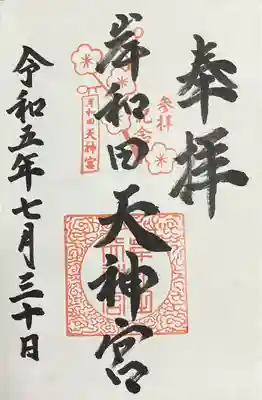 奉拝
参拝
記念
岸和田天神宮
岸和田
天神宮
令和五年七月三十日